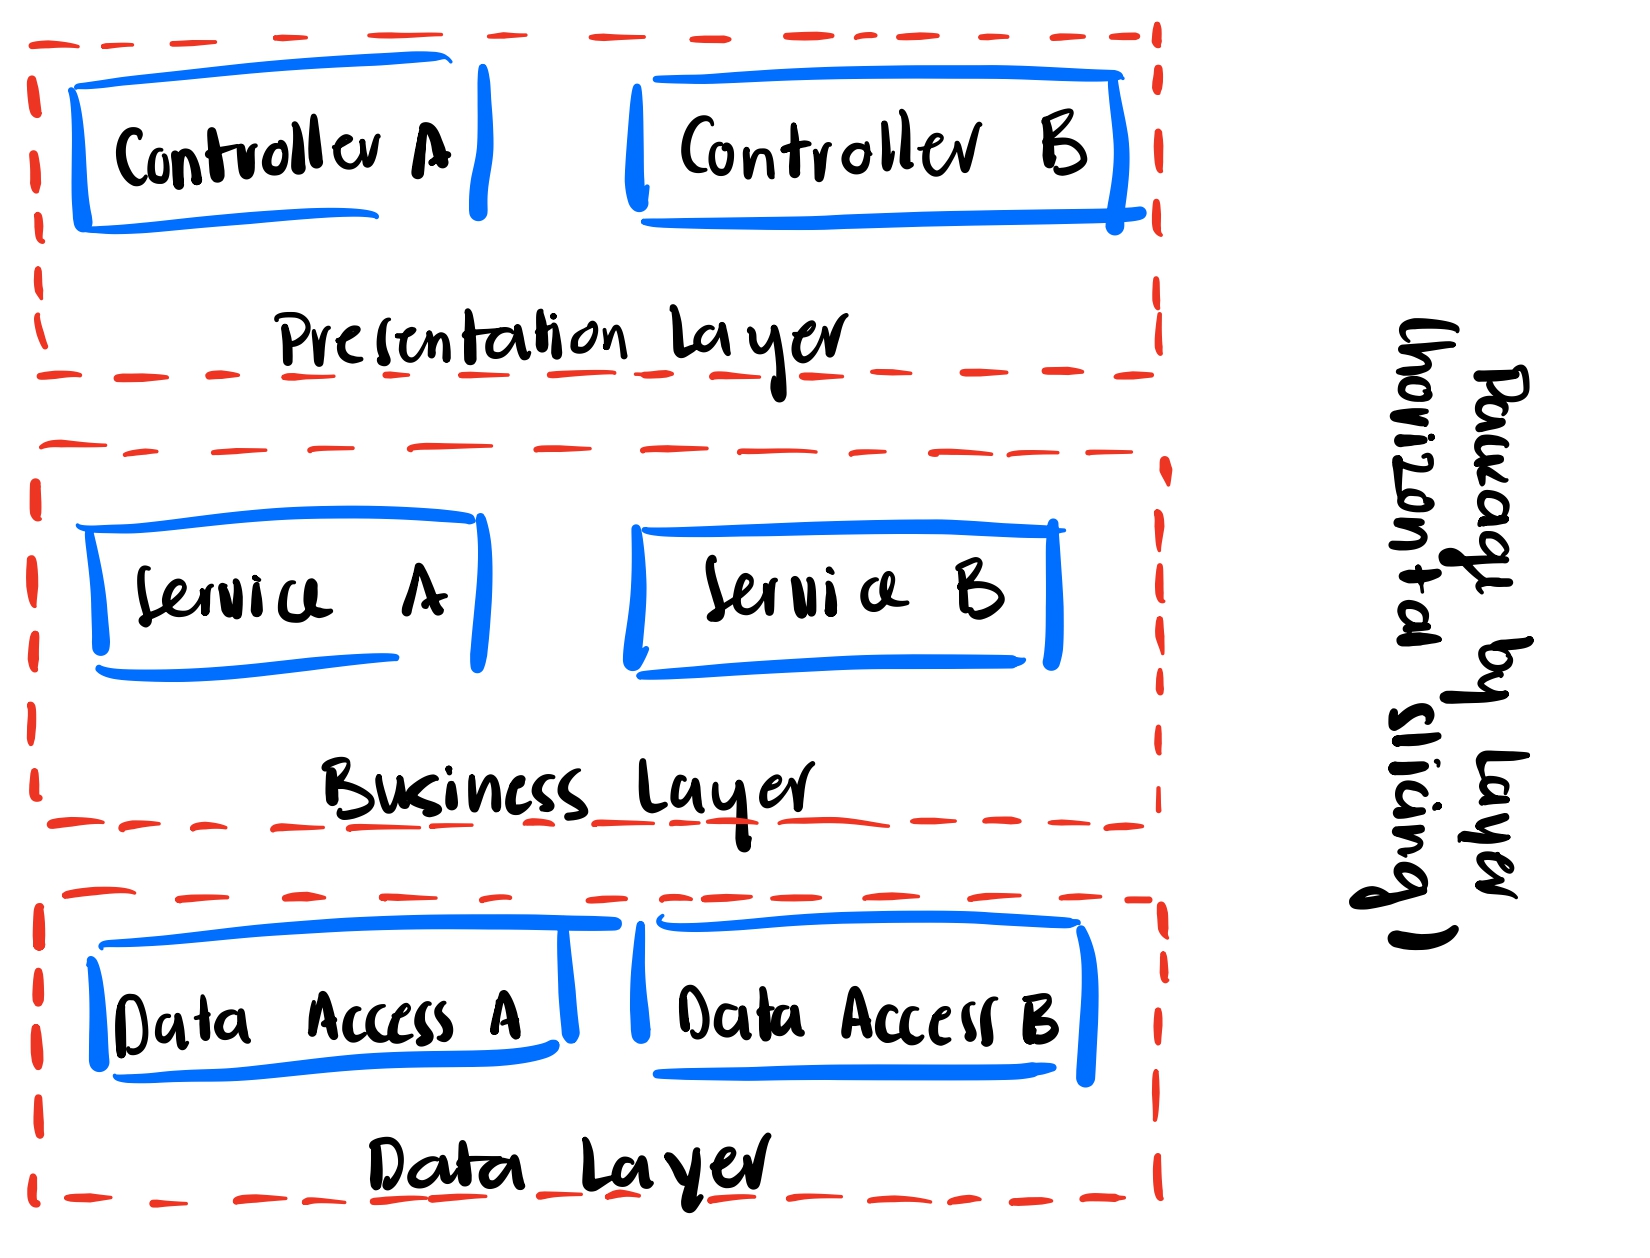 Controller A
Controller B
Presentation Layer
Service A
Service B
Business Layer
Data Access A
Data Access B
Data Layer
Package by Layer
(horizontal slicing)